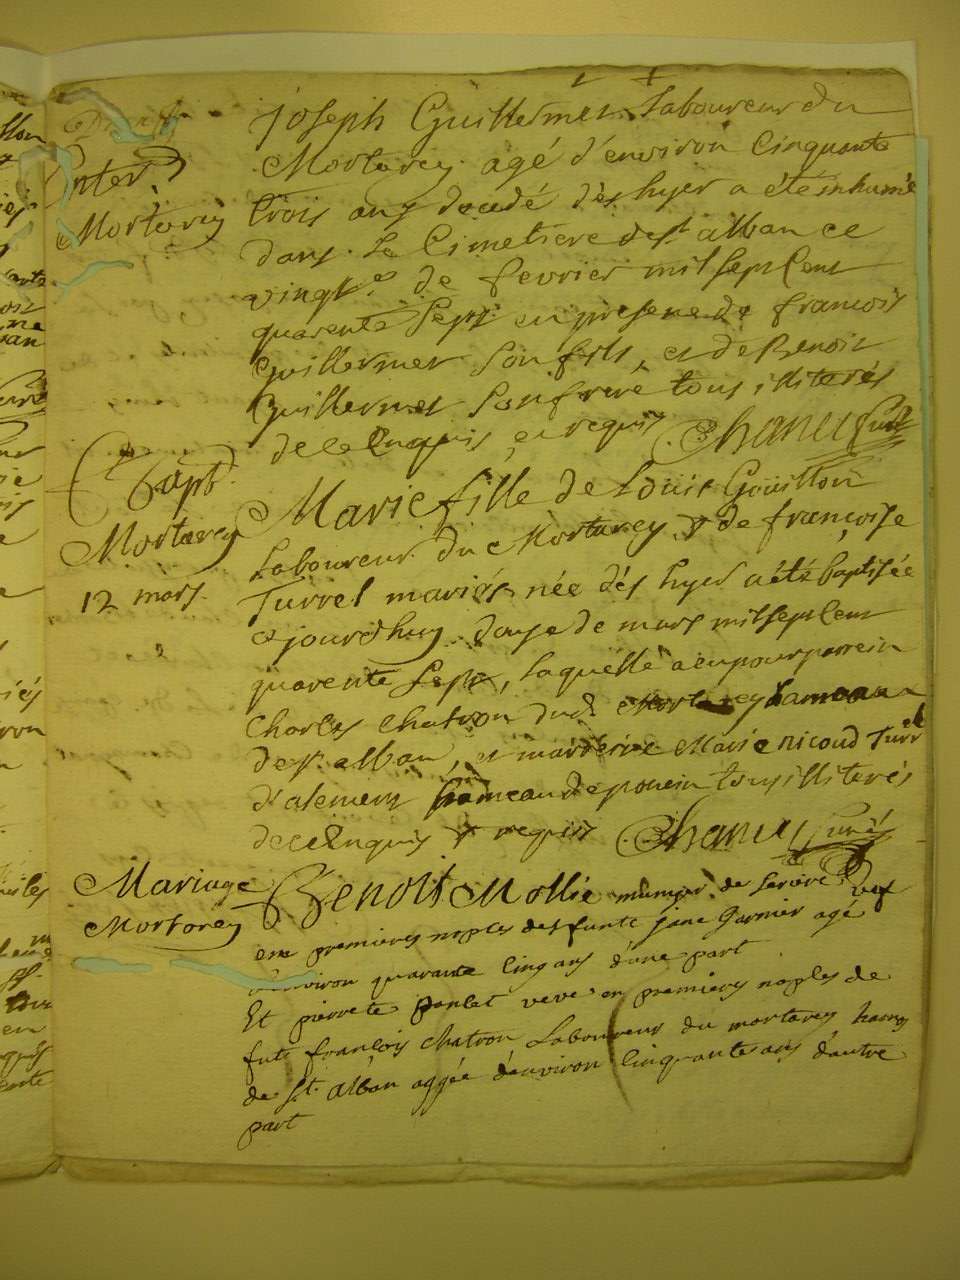 Enter.
Mortarey
joseph Guillermet Laboureur du
Mortarey agé d'environ Cinquante
trois ans decedé dès hyer a été inhumé
dans le Cimetiere de st alban ce
vingt de fevrier mil sept Cent
quarente Sept en presence de francois
Guillermet Son fils, et de Benoit
Guillermet Son frere tous illiterés
de ce Enquis et requis Chanel Curé
Bapt.
Mortarey
12 mars
Marie fille de Louis Goüillon
Laboureur du Mortarey & de françoise
Turrel mariés née dès hyer a été baptisée
ajourdhuy douze de mars mil sept Cent
quarente Sept, laquelle a eu pour parrein
Charles Chatron dud. Mortarey hameau
de st alban, et marreine Marie nicoud Turrel
d'alement hameau de poncin tous illiterés
de ce Enquis & requis Chanel Curé
Mariage
Mortarey
Benoit Mollie munier de Veuf
ene premieres noples de funte jane Garnier agé
d'environ quarante Cinq ans d'une part
Et pierrete veve en premieres noples de
fut françois Chatron Laboureur du mortarey
de St. Alban aggée d'environ Cinquante ans d'autre
part